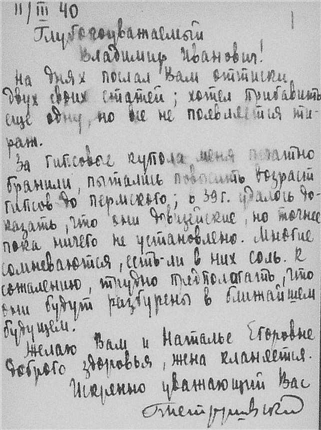 11/III 40
Глубокоуважаемый
Владимир Иванович!
На днях послал Вам оттиски
двух своих статей; хотел прибавить
еще одну, но все не появляется ти-
раж.
За гипсовые купола меня печатно
бранили, пытались повысить возраст
гипсов до пермского; в 39 г. удалось до-
казать, что они девонские, но точнее
пока ничего не установлено. Многие
сомневаются, есть-ли в них соль. К
сожалению, трудно предполагать, что
они будут разбурены в ближайшем
будущем.
Желаю Вам и Наталье Егоровне
доброго здоровья, жена кланяется.
Искренно уважающий Вас